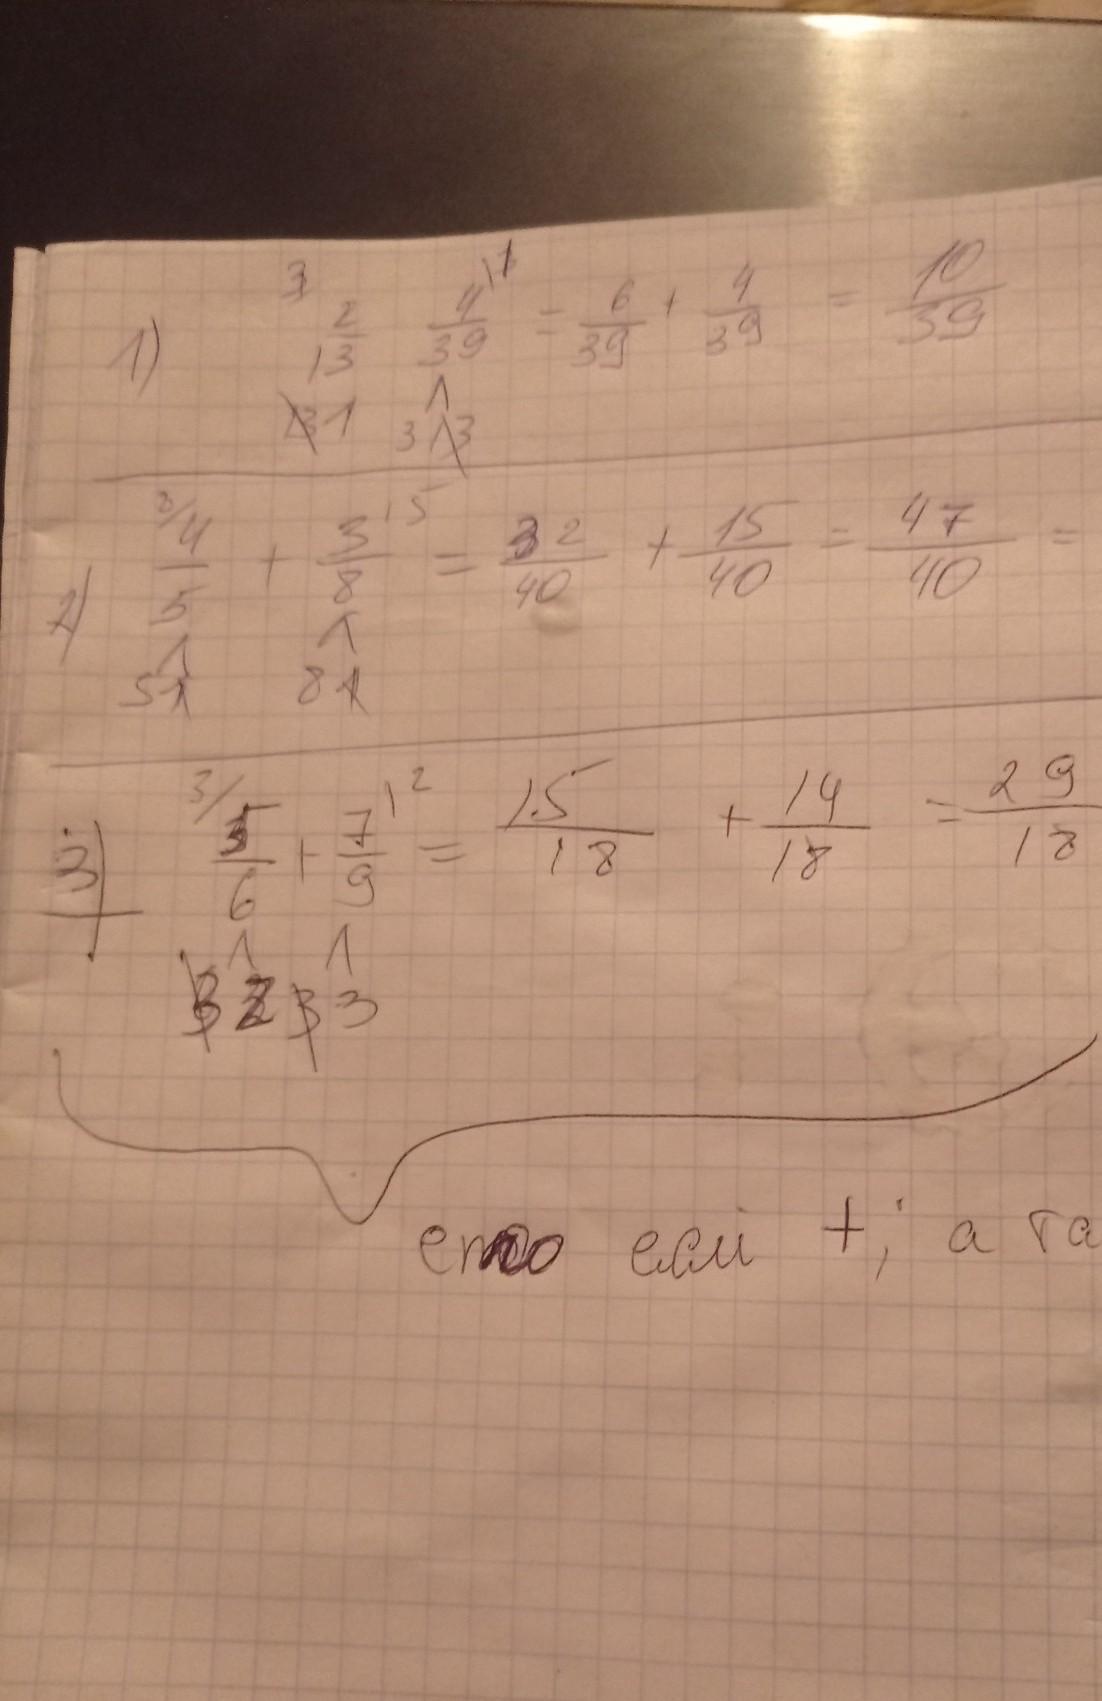 1) 3 2/13 4/39 1 = 6/39 + 4/39 = 10/39
13 1 3 13
2) 8/ 4/5 + 3/8 15 = 32/40 + 15/40 = 47/40 =
5 1 8 1
3) 3/ 5/6 + 7/9 12 = 15/18 + 14/18 = 29/18
3 2 3 3
если +; а та